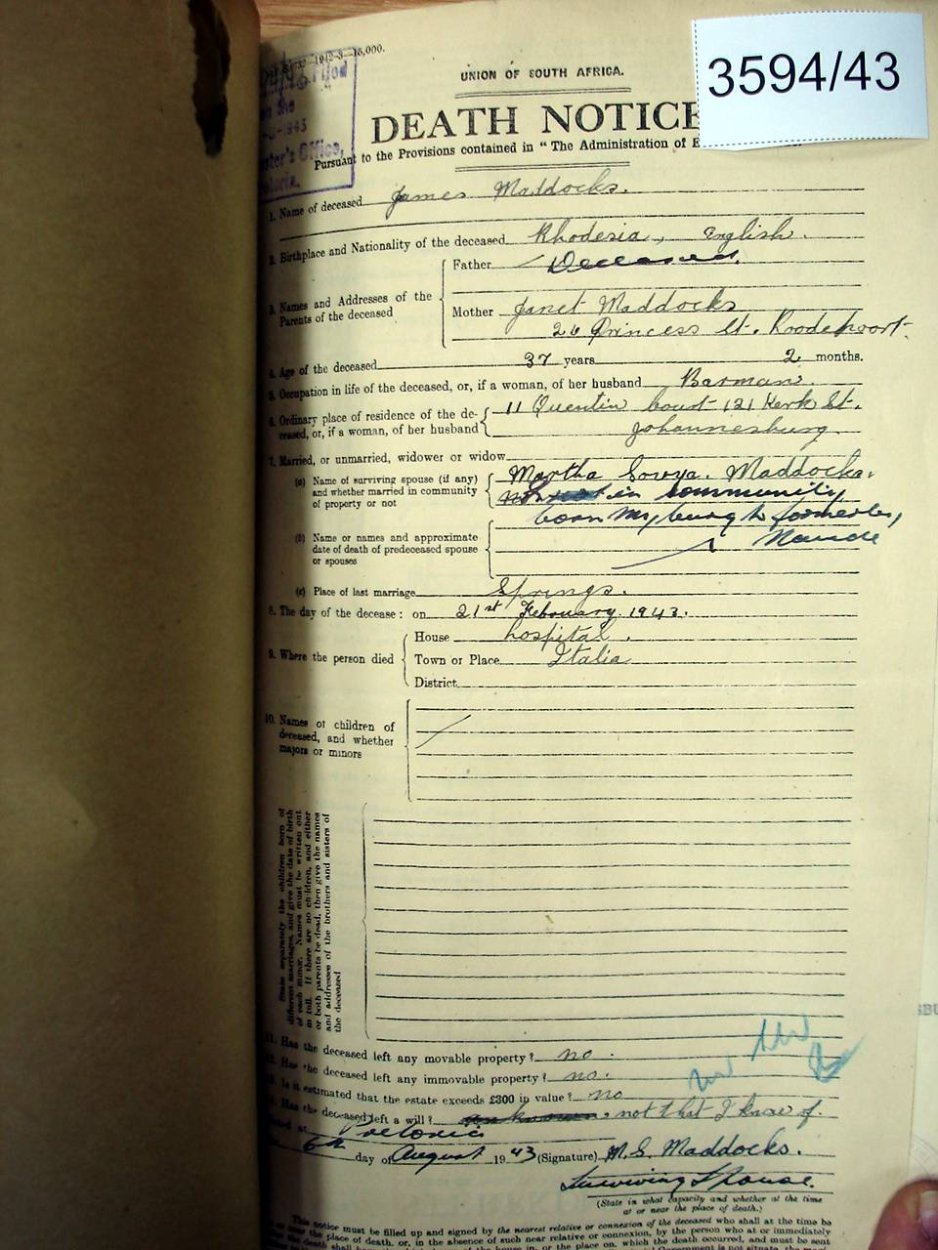 1942-3-15,000.
3594/43
UNION OF SOUTH AFRICA.
DEATH NOTICE
Pursuant to the Provisions contained in "The Administration of
1. Name of deceased James Maddocks.
2. Birthplace and Nationality of the deceased Rhodesia, English.
3. Names and Addresses of the Parents of the deceased
Father Deceased.
Mother Janet Maddocks
26 Princess St. Roodepoort.
4. Age of the deceased 37 years 2 months.
5. Occupation in life of the deceased, or, if a woman, of her husband Barman.
6. Ordinary place of residence of the de- 11 Quentin Court 121 Kerk St.
ceased, or, if a woman, of her husband Johannesburg.
7. Married, or unmarried, widower or widow
(a) Name of surviving spouse (if any) Martha Maddocks.
and whether married in community in community
of property or not born Myburgh formerly,
Naude
(b) Name or names and approximate
date of death of predeceased spouse
or spouses
(c) Place of last marriage Springs.
8. The day of the decease: on 21st February 1943.
9. Where the person died
House hospital.
Town or Place Italia
District
10. Names of children of
deceased, and whether
majors or minors
State separately the children born of
different marriages, and give the date of birth
of each minor. Names must be written out
in full. If there are no children, and either
or both parents be dead, then give the names
and addresses of the brothers and sisters of
the deceased
11. Has the deceased left any movable property? no.
12. Has the deceased left any immovable property? no.
13. Is it estimated that the estate exceeds £300 in value? no
14. Has the deceased left a will? unknown, not that I know of.
Dated at Pretoria
6th day of August 1943 (Signature) M. S. Maddocks.
Surviving Spouse.
(State in what capacity and whether at the time
or near the place of death.)
This notice must be filled up and signed by the nearest relative or connexion of the deceased who shall at the time be
or near the place of death, or, in the absence of such near relative or connexion, by the person who at or immediately